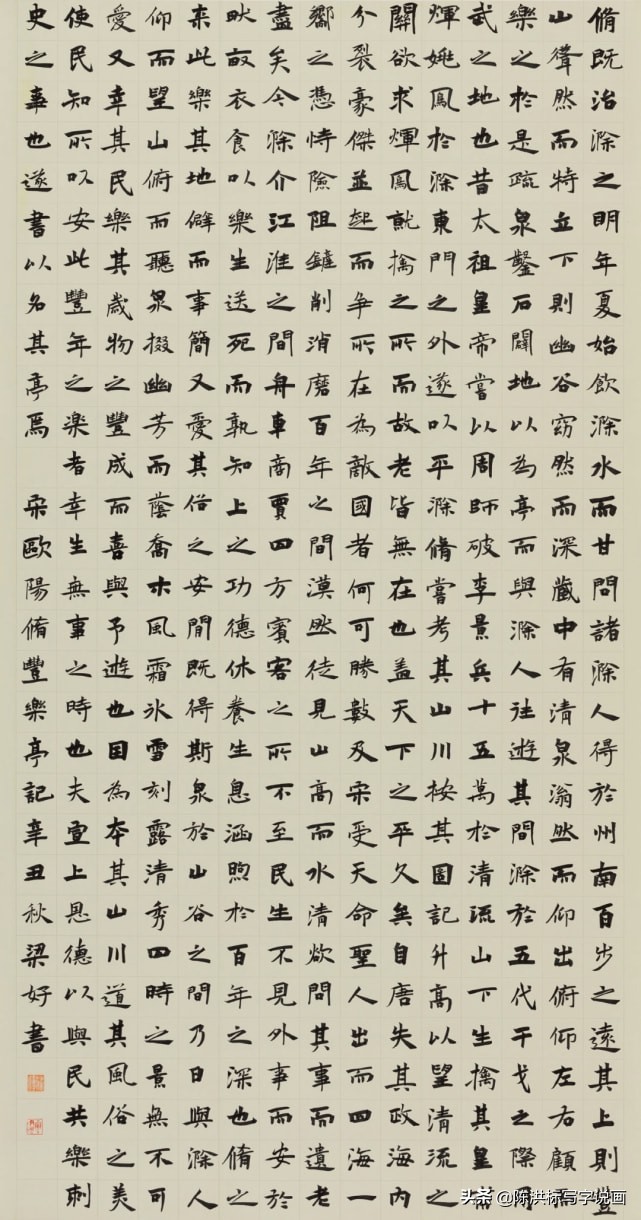 脩既治滁之明年夏始飲滁水而甘問諸滁人得於州南百步之遠其上則豐
山聳然而特立下則幽谷窈然而深藏中有清泉滃然而仰出俯仰左右顧而
樂之於是疏泉鑿石闢地以為亭而與滁人往遊其間滁於五代干戈之際用
武之地也昔太祖皇帝嘗以周師破李景兵十五萬於清流山下生擒其皇甫
煇姚鳳於滁東門之外遂以平滁脩嘗考其山川按其圖記升高以望清流之
關欲求煇鳳就擒之所而故老皆無在也蓋天下之平久矣自唐失其政海內
分裂豪傑並起而爭所在為敵國者何可勝數及宋受天命聖人出而四海一
嚮之憑恃險阻鏟削消磨百年之間漠然徒見山高而水清欲問其事而遺老
盡矣今滁介江淮之間舟車商賈四方賓客之所不至民生不見外事而安於
畎畝衣食以樂生送死而孰知上之功德休養生息涵煦於百年之深也脩之
來此樂其地僻而事簡又愛其俗之安閒既得斯泉於山谷之間乃日與滁人
仰而望山俯而聽泉掇幽芳而蔭喬木風霜冰雪刻露清秀四時之景無不可
愛又幸其民樂其歲物之豐成而喜與予遊也因為本其山川道其風俗之美
使民知所以安此豐年之樂者幸生無事之時也夫宣上恩德以與民共樂刺
史之事也遂書以名其亭焉 宋歐陽脩豐樂亭記辛丑秋梁好書
头条 @陈洪标写字说画